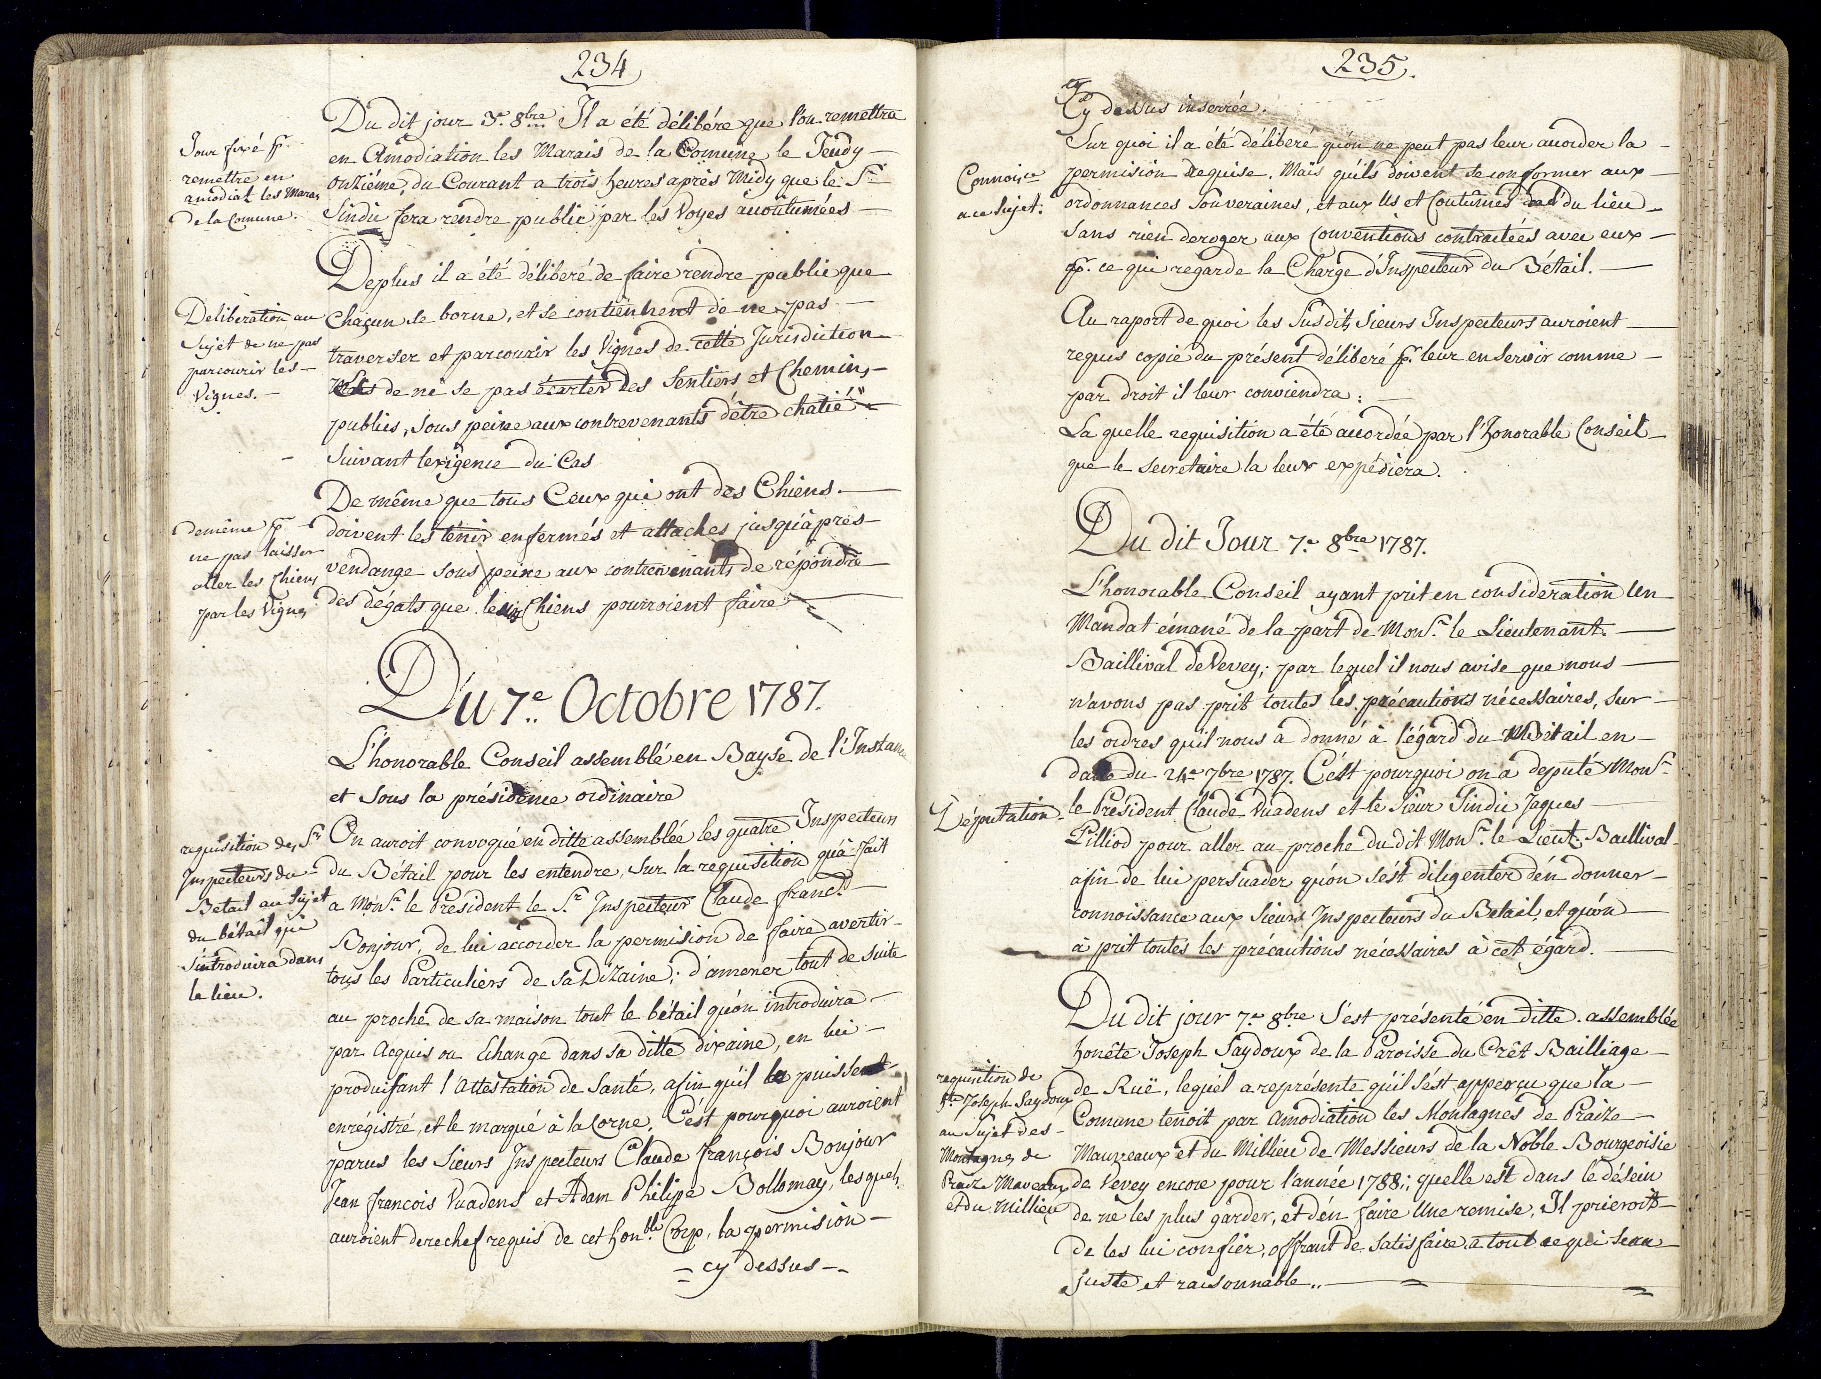 234
Jour fixé pr.
remettre en
amodiat. les Marais
de la Comune.
Du dit jour 3e. 8bre Il a été délibéré que l'on remettra
en Amodiation les Marais de la Comune, le Jeudy
onziéme, du Courant a trois heures aprés Midy que le Sr.
Sindic fera rendre public par les Voyes acoutumées
Deliberation au
Sujet de ne pas
parcourir les
Vignes.
Deplus il a été déliberé de faire rendre public que
Chacun se borne, et se contiennent de ne pas
traverser et parcourir les Vignes de cette Jurisdiction
de né se pas écarter des Sentiers et Chemins
publics, Sous peine aux contrevenants d'étre chatié
Suivant lexigence du Cas
demême pr
ne pas laisser
aller les Chiens
par les Vignes
De même que tous Ceux qui ont des Chiens
doivent les ténir enfermés et attachés jusqu'aprés
vendange sous peine aux contrevenants de répondre
des dégats que les Chiens pourroient faire
Du 7e. Octobre 1787.
L'honorable Conseil assemblé en Bayse de l'Instance
et Sous la présidence ordinaire
requisition des Srs
Inspecteurs du
Betail au Sujet
du bétail qui
s'introduira dans
le lieu.
On auroit convoqué en ditte assemblée les quatre Inspecteurs
du Bétail pour les entendre, Sur la requisition qu'a fait
a Monsr. le Président le Sr. Inspecteur Claude franc.
Bonjour, de lui accorder la permision de faire avertir
tous les Particuliers de Sa Dizaine; d'amener tout de suite
au proche de sa maison tout le bétail qu'on introduira
par Acquis ou Echange dans sa ditte dixaine, en lui
produisant l'Attestation de Santé, afin qu'il le puisse
enrégistré, et le marqué à la Corne. C'ést pourquoi auroient
parus les Sieurs Inspecteurs Claude françois Bonjour
Jean francois Vuadens et Adam Philipe Bollomay, lesquels
auroient derechef requis de cet honble. Corp, la permision
cy dessus
235.
Cy dessus inserrée.
Connoisce
a ce Sujet.
Sur quoi il a été déliberé qu'on ne peut pas leur acorder la
permision Requise. Mais qu'ils doivent se conformer aux
ordonnances Souveraines, et aux Us et Coutumes du lieu
Sans rien deroger aux Conventions contractées avec eux
pr. ce qui regarde la Charge d'Inspecteur du Bétail.
Au raport de quoi les Susdits Sieurs Inspecteurs auroient
requis copie du présent déliberé pr. leur en Servir comme
par droit il leur conviendra.
La quelle requisition a été acordée par l'honorable Conseil
que le Secretaire la leur expédiera.
Du dit Jour 7e. 8bre 1787.
L'honorable Conseil ayant prit en consideration Un
Mandat émané de la part de Monsr. le Lieutenant
Baillival de Vevey; par lequel il nous avise que nous
n'avons pas prit toutes les précautions nécessaires, Sur
les ordres qu'il nous a donné à l'égard du Bétail en
datte du 24e 7bre 1787. C'est pourquoi on a deputé Monsr.
Députation.
le Président Claude Vuadens et le Sieur Sindic Jaques
Pilliod pour aller au proche du dit Monsr. le Lieut. Baillival
afin de lui persuader qu'on s'ést diligenter d'én donner
connoissance aux Sieurs Inspecteurs du Betail, et qu'on
à prit toutes les précautions nécessaires à cet égard.
requisition de
hte. Joseph Saydoux
au Sujet des
Montagnes de
Praiz Mavеaux
et du Millieu
Du dit jour 7e 8bre S'est présenté en ditte assemblée
honête Joseph Saydoux de la Paroisse du Crêt Bailliage
de Ruë, lequel a représente qu'il s'ést apperçu que la
Comune tenoit par Amodiation les Montagnes de Praize
Mauveaux et du Millieu de Messieurs de la Noble Bourgeoisie
de Vevey encore pour l'année 1788; quelle est dans le désein
de né les plus garder, et d'én faire Une remise, Il prieroit
de les lui confier, offrant de Satisfaire à tout ce qui Sera
juste et raisonnable.